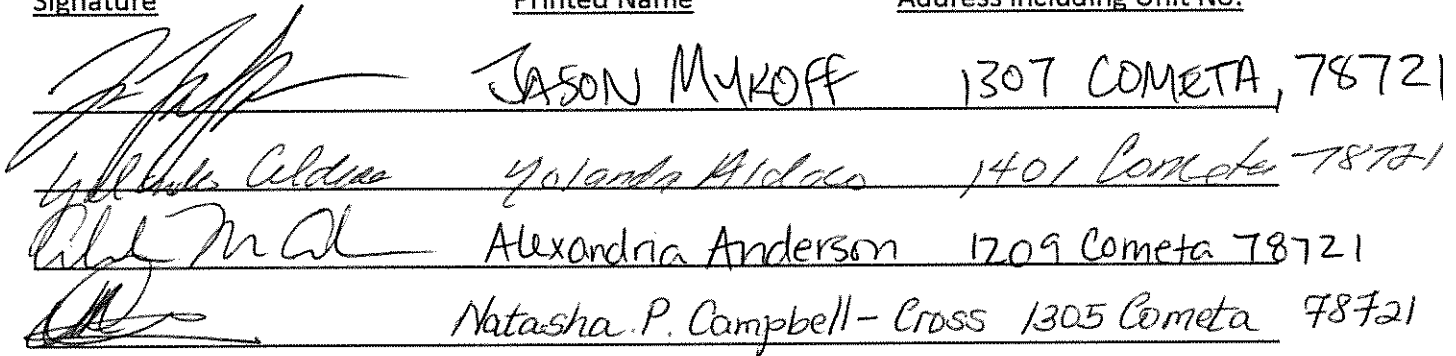 Signature Printed Name Address Including Unit No.
JASON MYKOFF 1307 COMETA, 78721
Yolanda Aldaco 1401 Cometa 78721
Alexandria Anderson 1209 Cometa 78721
Natasha P. Campbell-Cross 1305 Cometa 78721